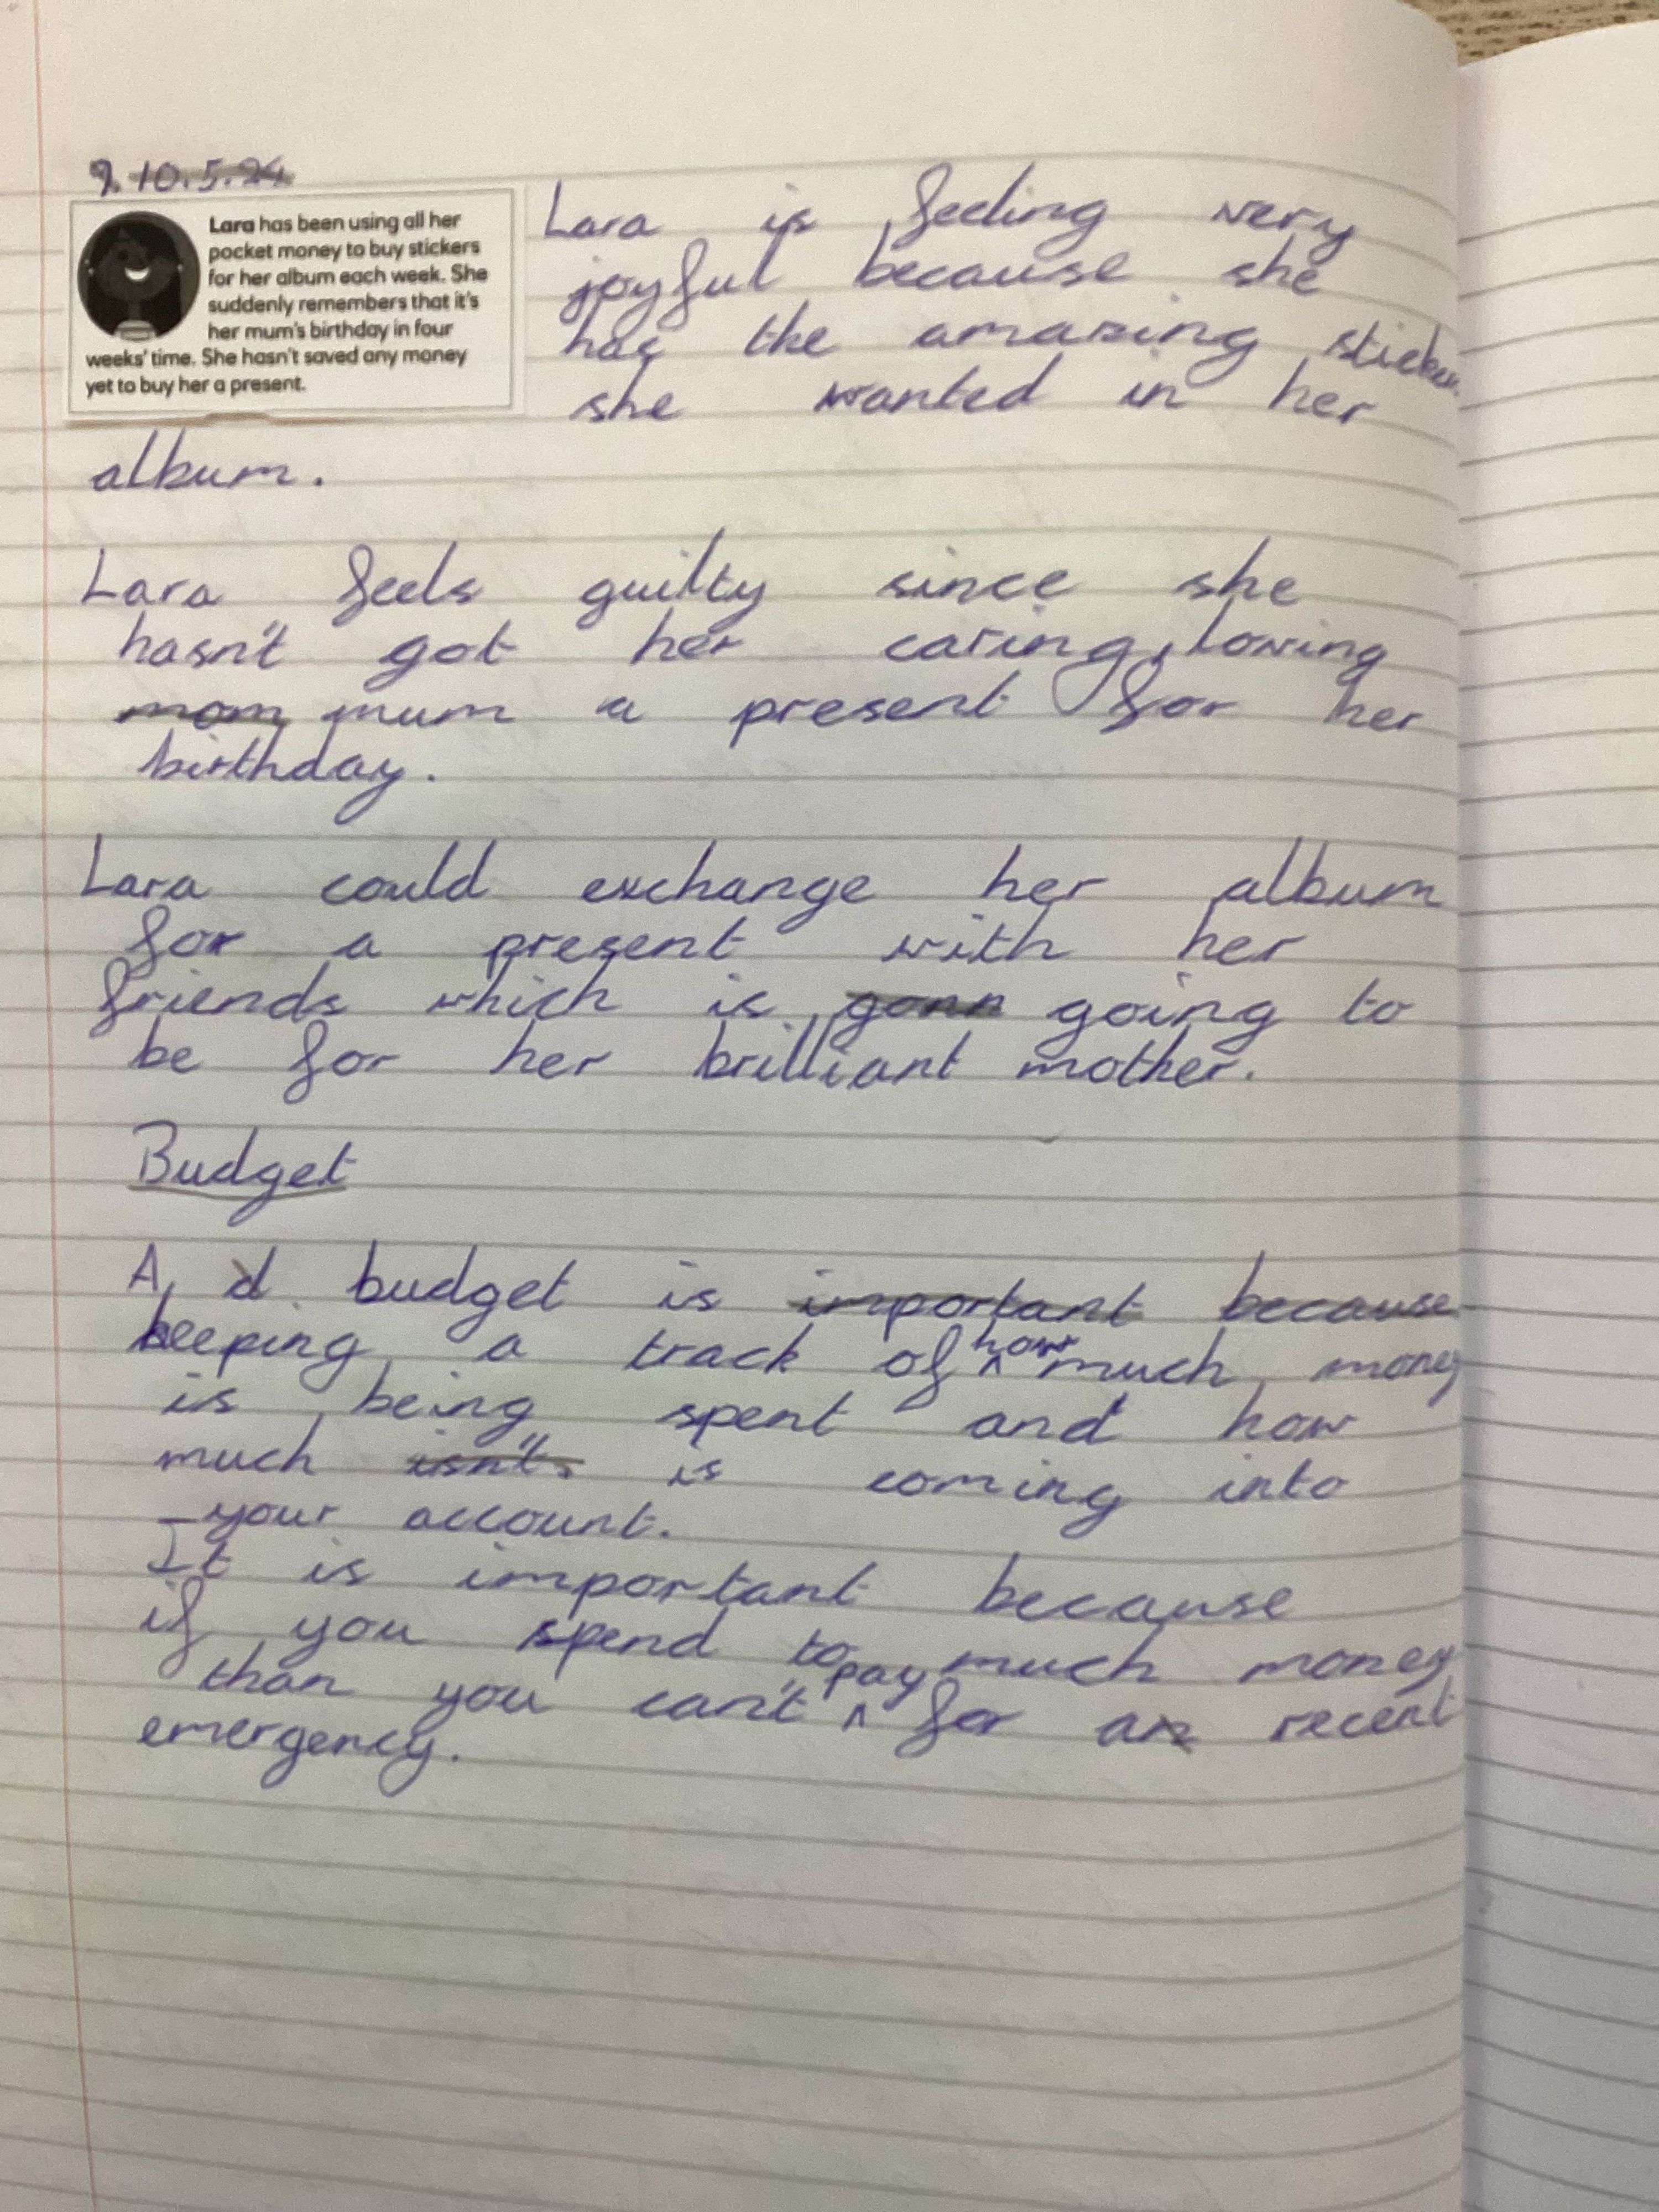 9. 10.5.24
Lara has been using all her
pocket money to buy stickers
for her album each week. She
suddenly remembers that it's
her mum's birthday in four
weeks' time. She hasn't saved any money
yet to buy her a present.
Lara is feeling very
joyful because she
has the amazing
she wanted in her
album.
Lara feels guilty since she
hasn't got her caring, loving
mom mum a present for her
birthday.
Lara could exchange her album
for a present with her
friends which is gonn going to
be for her brilliant mother.
Budget
A budget is important because
keeping a track of how much money
is being spent and how
much isn't is coming into
your account.
It is important because
if you spend to much money
than you can't pay for a recent
emergency.